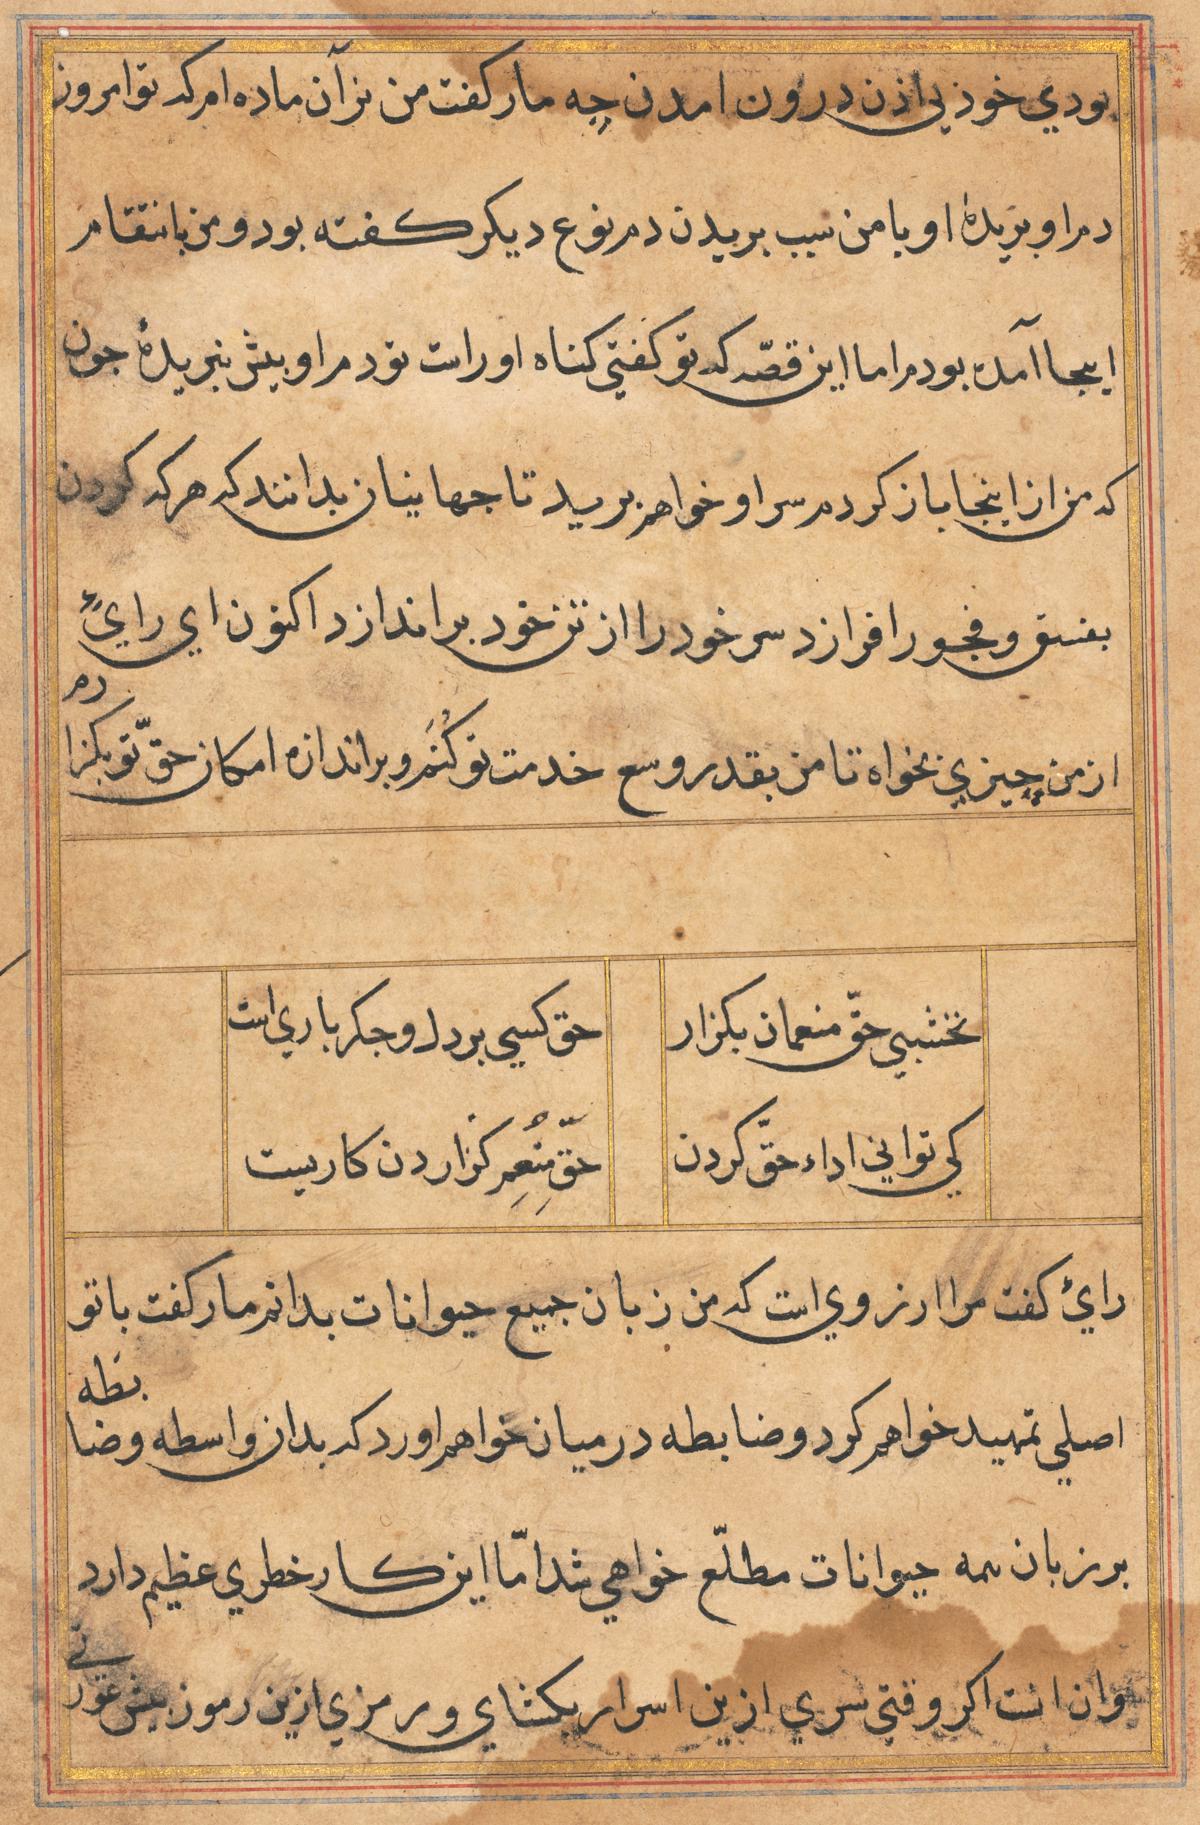 بودي خود بي اذن درون امدن چه مار كفت من نر آن ماده ام كه تو امروز
دم او بريدهٔ او با من سبب بريدن دم نوع ديكر كفته بود و من بانتقام
اينجا آمده بودم اما اين قصّه كه تو كفتي كناه او راست تو دم او بيش نبريدهٔ جون
كه من از اينجا باز كردم سر او خواهم بريد تا جهانيان بدانند كه هركه كردن
بفسق و فجور افرازد سر خود را از تن خود براندازد اكنون اي رائ
از من چيزي بخواه تا من بقدر وسع خدمت تو كُنَم و بر اندازه امكان حقّ تو بكزارم
نخشبي حقّ منعمان بكزار
حق كسي بر دل و جكر باري است
كي تواني اداء حقّ كردن
حَقِّ مُنْعِم كزاردن كاريست
رائ كفت مرا ارزوي است كه من زبان جميع حيوانات بدانم مار كفت با تو
اصلي تمهيد خواهم كرد و ضابطه در ميان خواهم اورد كه بدان واسطه و ضابطه
بر زبان همه حيوانات مطلّع خواهي شد امّا اين كار خطري عظيم دارد
وان انست اكر وقتي سري ازين اسرار بكشاي و رمزي ازين رموز بيش عورتي